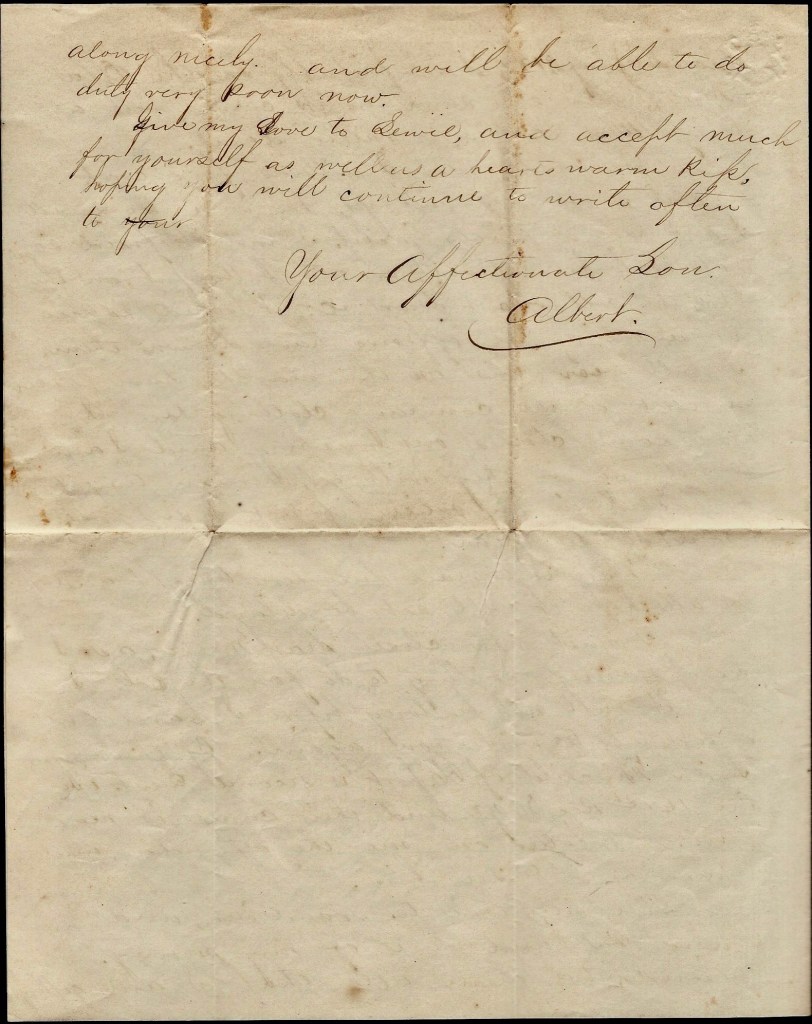 along nicely. and will be able to do
duty very soon now.
Give my Love to Lewie, and accept much
for yourself as well as a hearts warm Kiss,
hoping you will continue to write often
to your
Your Affectionate Son.
Albert.